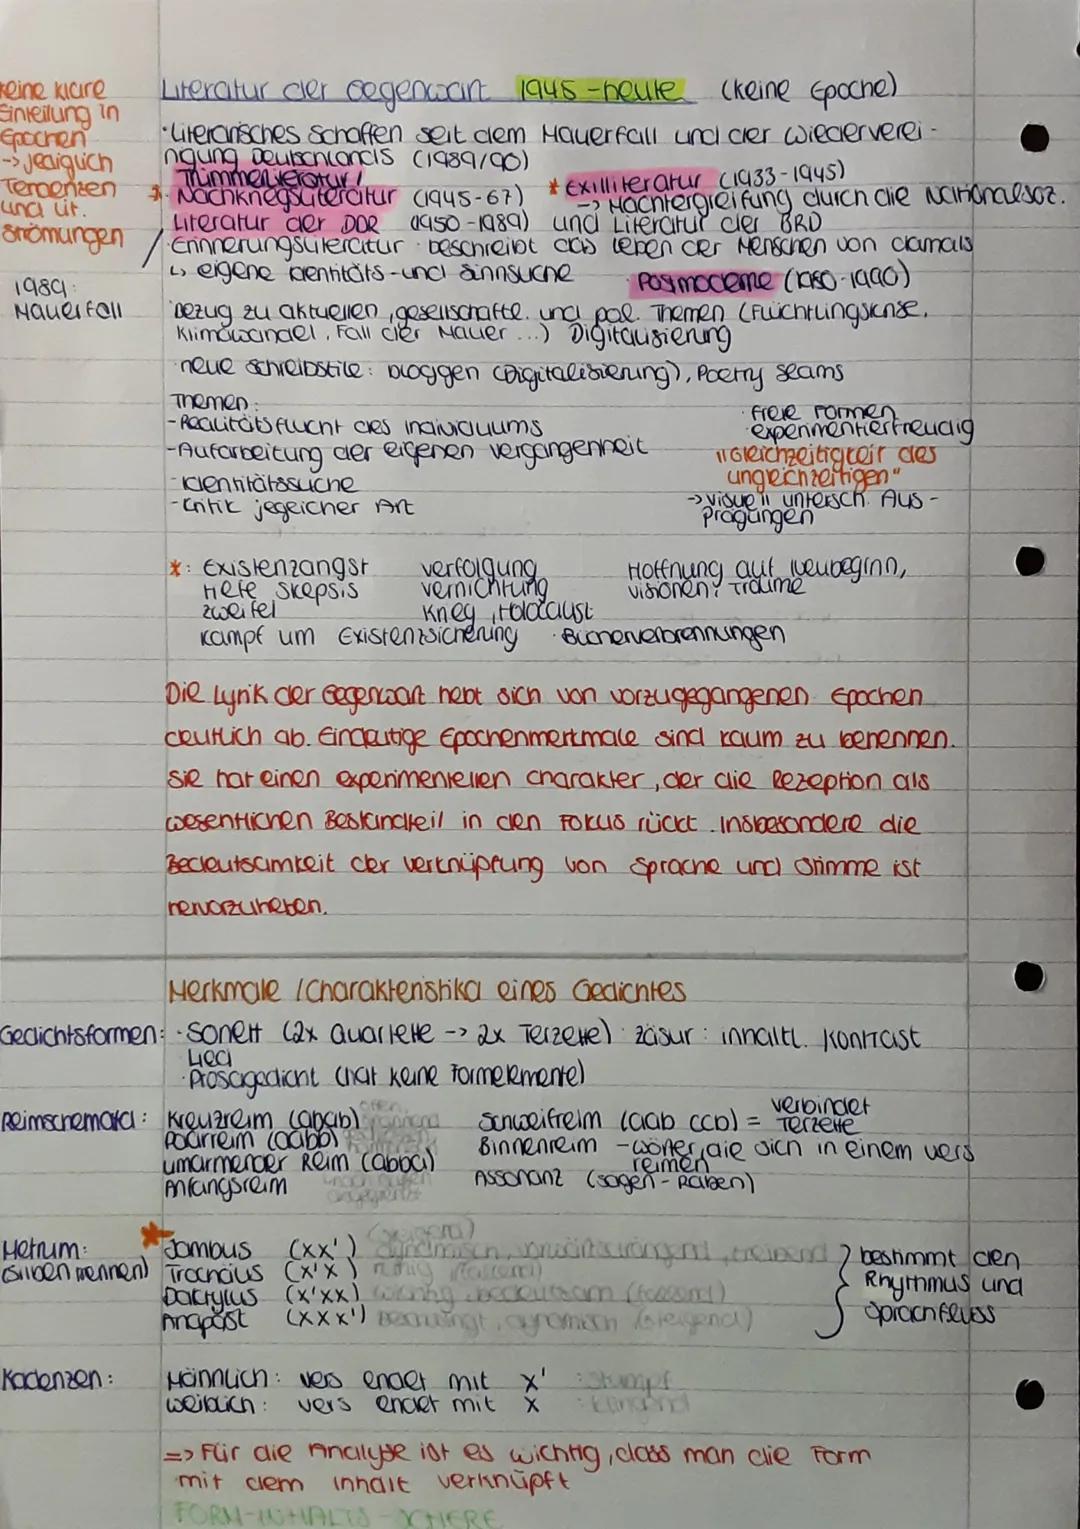 Literatur der Gegenwart 1945-heute (keine Epoche)
keine klare
Einteilung in
Epochen
-> lediglich
Tendenzen
und lit.
Strömungen
1989:
Mauerfall
·Literarisches Schaffen seit dem Mauerfall und der Wiederverei-
nigung Deutschlands (1989/90)
Trümmerliteratur/
* Nachkriegsliteratur (1945-67)
* Exilliteratur (1933-1945)
-> Machtergreifung durch die Nationalsoz.
Literatur der DDR (1950-1989) und Literatur der BRD
Erinnerungsliteratur · beschreibt das Leben der Menschen von damals
↳ eigene Identitäts- und Sinnsuche
·Postmoderne (1980-1990)
·Bezug zu aktuellen, gesellschaftl. und pol. Themen (Flüchtlingskrise,
Klimawandel, Fall der Mauer ...) Digitalisierung
·neue Schreibstile: bloggen (Digitalisierung), Poetry Seams
Themen:
-Realitätsflucht des Individuums
-Aufarbeitung der eigenen Vergangenheit
-Identitätssuche
-Kritik jegeicher Art
· freie Formen
· experimentierfreudig
"Gleichzeitigkeit des
ungleichzeitigen"
-> visuell untersch. Aus-
prägungen
*: Existenzangst verfolgung Hoffnung auf Neubeginn,
tiefe Skepsis vernichtung visionen, Träume
zweifel Krieg, Holocaust
Kampf um Existenzsicherung · Bücherverbrennungen
Die Lyrik der Gegenwart hebt sich von vorzugegangenen Epochen
deutlich ab. Eindeutige Epochenmerkmale sind kaum zu benennen.
Sie hat einen experimentellen Charakter, der die Rezeption als
wesentlichen Bestandteil in den Fokus rückt. Insbesondere die
Bedeutsamkeit der Verknüpfung von Sprache und Stimme ist
hervorzuheben.
Merkmale / Charakteristika eines Gedichtes
Gedichtsformen: · Sonett (2x Quartette -> 2x Terzette) · Zäsur: inhaltl. Kontrast
· Lied
· Prosagedicht (hat keine Formelemente)
Reimschemata: Kreuzreim (abab) offen
Paarreim (aabb)
umarmender Reim (abba)
Anfangsreim
Schweifreim (aab ccb) = verbindet
Terzette
Binnenreim -wörter, die sich in einem vers
reimen
Assonanz (sagen - Raben)
Metrum:
(Silben nennen)
* Jambus (xx') (steigend) dynamisch, vorwärtsdrängend, treibend
Trochäus (x'x) ruhig (fallend)
Daktylus (x'xx) wichtig, bedeutsam (fallend)
Anapäst (xxx') beschwingt, dynamisch (steigend)
} bestimmt den
Rhythmus und
Sprachfluss
Kadenzen: Männlich: vers endet mit x' : stumpf
weiblich: vers endet mit x : klingend
=> Für die Analyse ist es wichtig, dass man die Form
mit dem Inhalt verknüpft
FORM-INHALTS-SCHERE